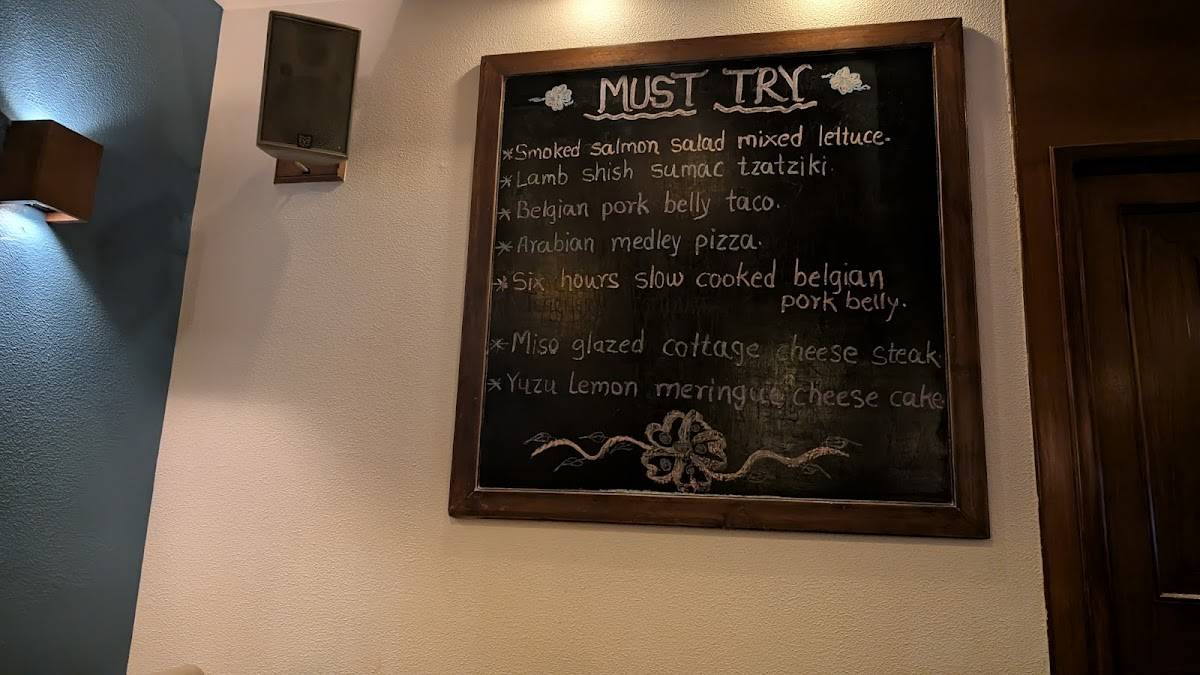 MUST TRY
*Smoked salmon salad mixed lettuce.
*Lamb shish sumac tzatziki.
*Belgian pork belly taco.
*Arabian medley pizza.
*Six hours slow cooked belgian
pork belly.
*Miso glazed cottage cheese steak.
*Yuzu Lemon meringue cheese cake